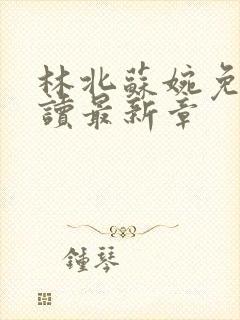 林北蘇婉免
讀最新章
鍾琴